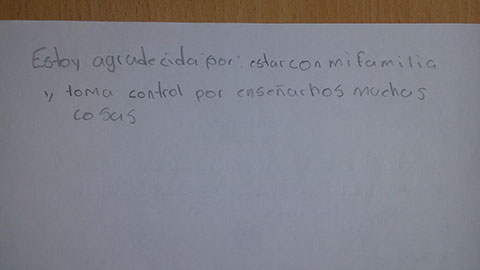 Estoy agradecida por: estar con mi familia
y toma control por enseñarnos muchas
cosas